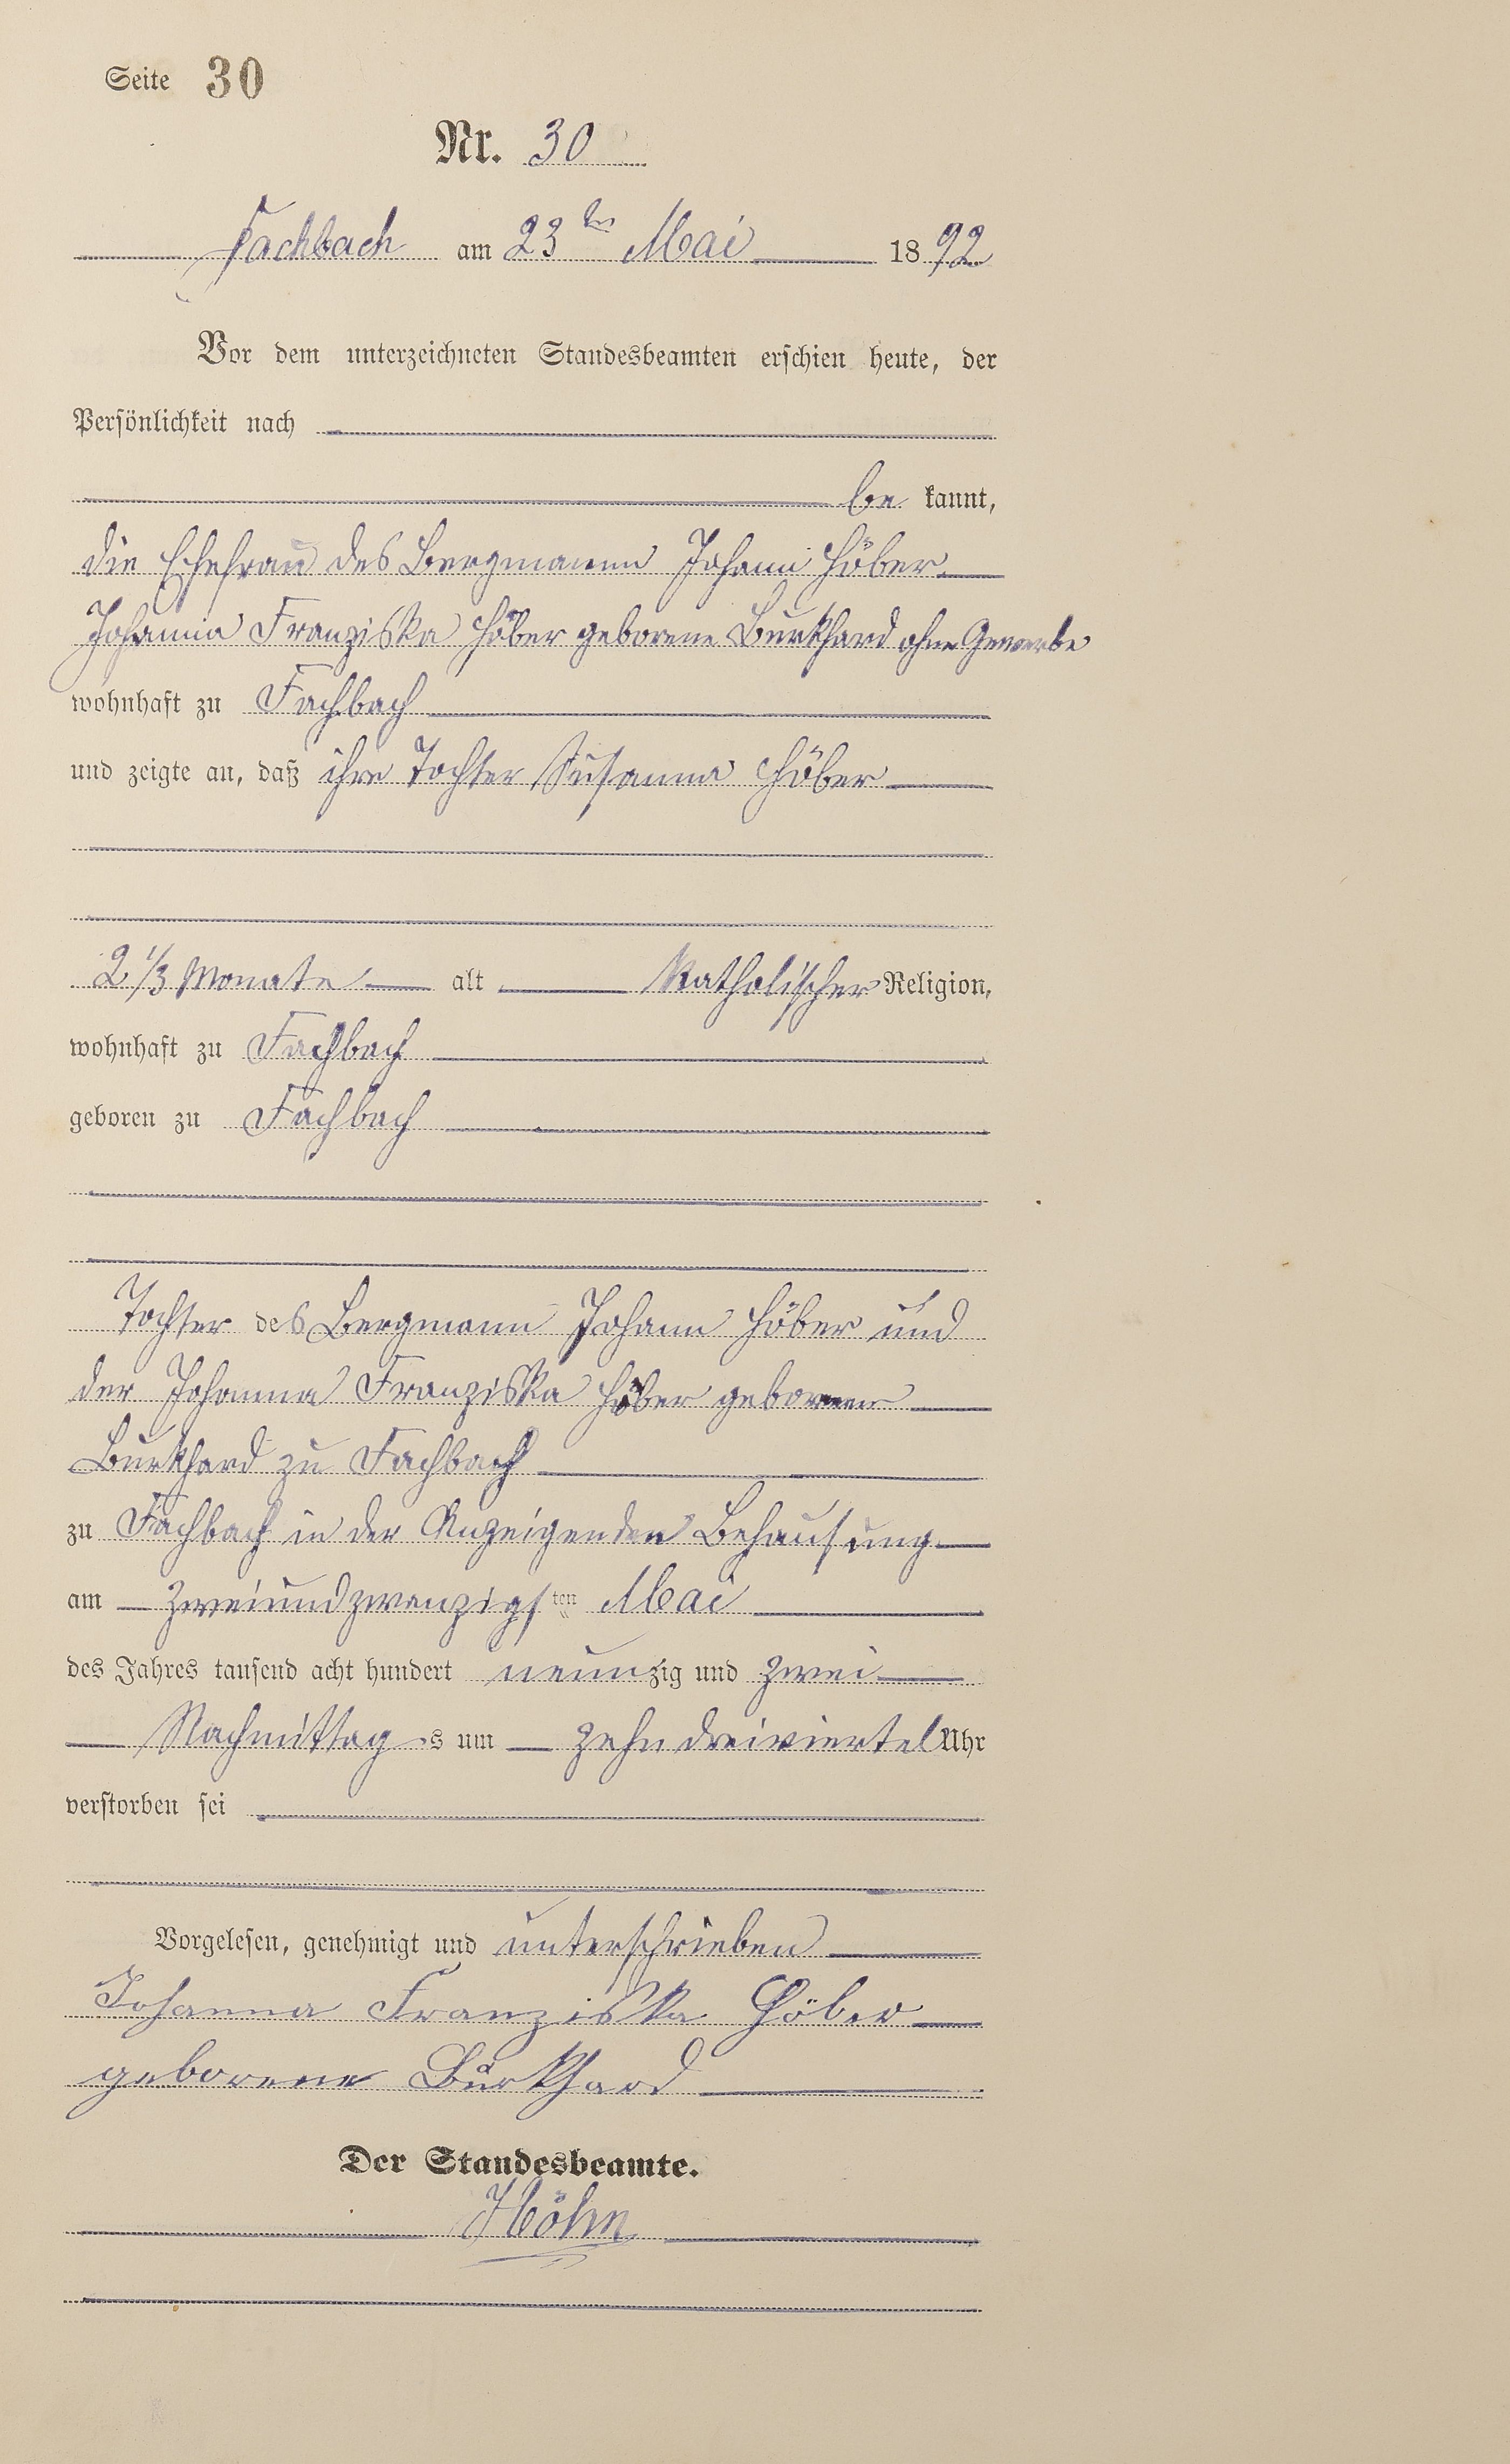 Seite 30
Nr. 30
Fachbach am 23ten Mai 1892
Vor dem unterzeichneten Standesbeamten erschien heute, der
Persönlichkeit nach
be kannt,
die Ehefrau des Bergmann Johann Höber
Johanna Franziska Höber geborene Burkhard ohne Gewerbe
wohnhaft zu Fachbach
und zeigte an, daß ihre Tochter Susanna Höber
2 1/3 Monate alt Katholischer Religion,
wohnhaft zu Fachbach
geboren zu Fachbach
Tochter des Bergmann Johann Höber und
der Johanna Franziska Höber geborenen
Burkhard zu Fachbach
zu Fachbach in der Anzeigenden Behausung
am zweiundzwanzigsten Mai
des Jahres tausend acht hundert neunzig und zwei
Nachmittags um zehn dreiviertel Uhr
verstorben sei
Vorgelesen, genehmigt und unterschrieben
Johanna Franziska Höber
geborene Burkhard
Der Standesbeamte.
Höhn